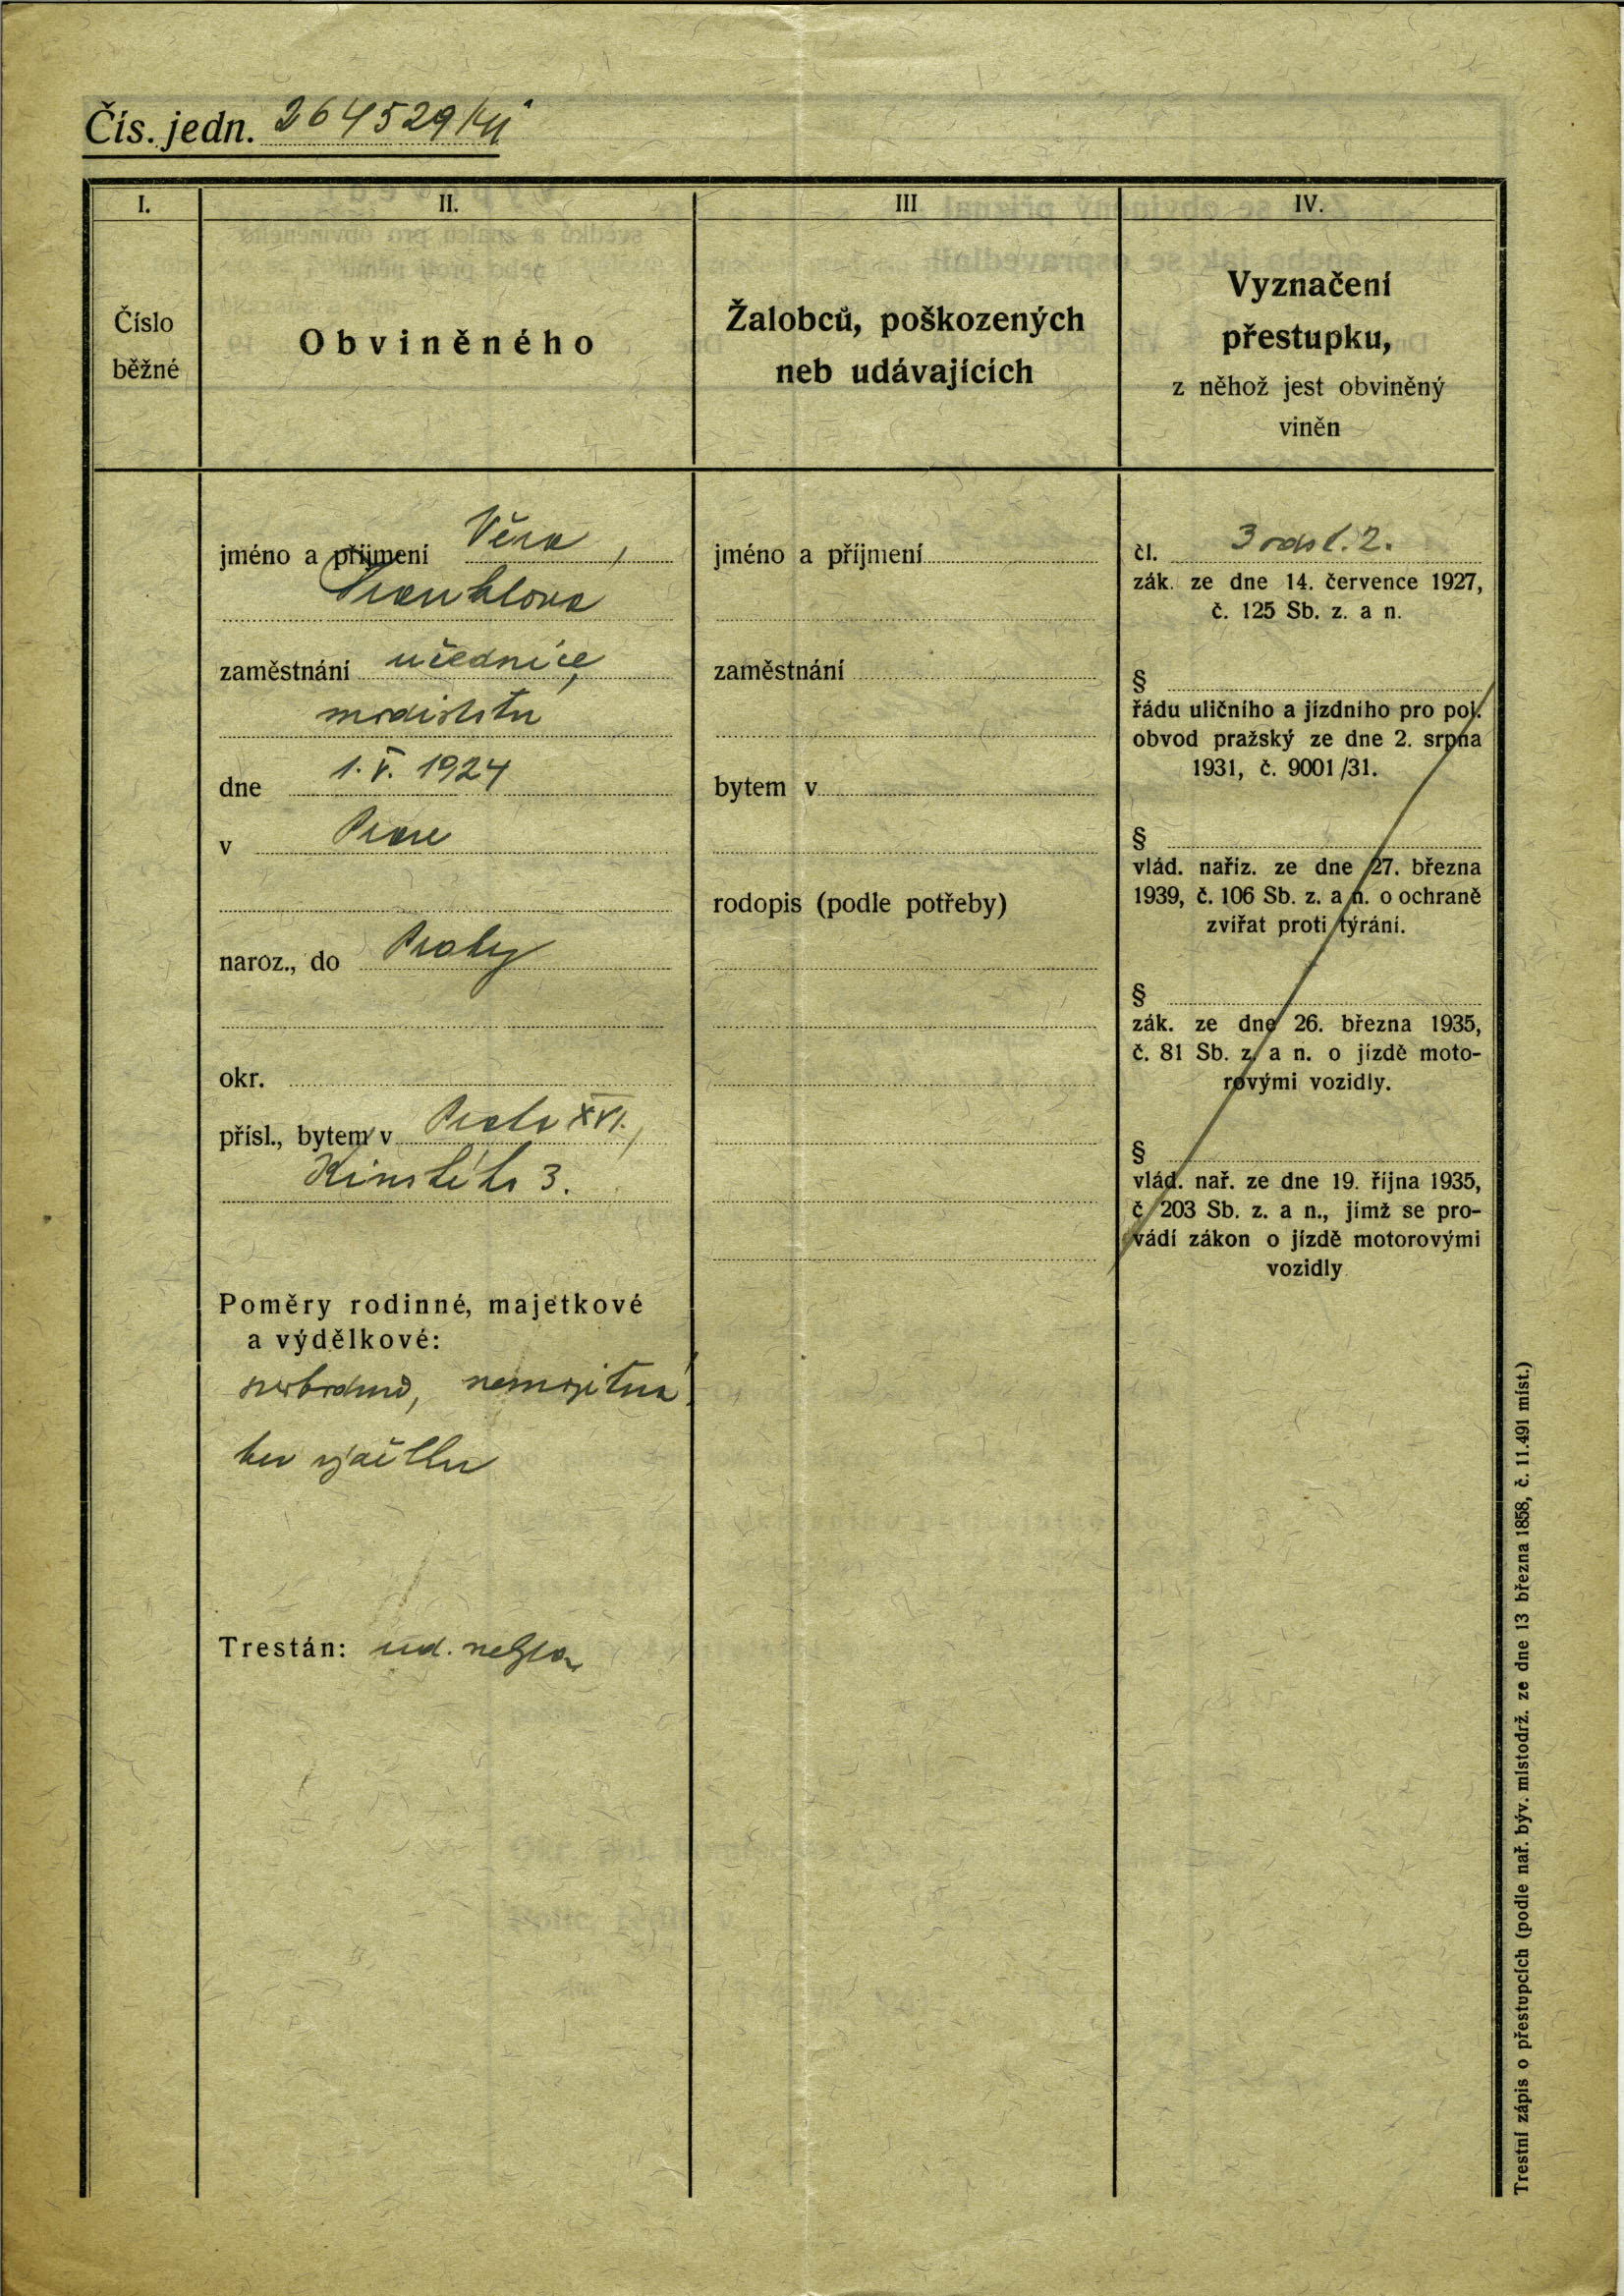 Čís. jedn. 264529/41
I.
II.
III
IV.
Číslo
běžné
Obviněného
Žalobců, poškozených
neb udávajících
Vyznačení
přestupku,
z něhož jest obviněný
viněn
jméno a příjmení Věra,
zaměstnání učednice
modistku
dne 1. V. 1924
v Praze
naroz., do Prahy
okr.
přísl., bytem v Praha XVI.,
Kinského 3.
Poměry rodinné, majetkové
a výdělkové:
svobodná, nemajetná
bez výdělku
Trestán: ud. nebyla
jméno a příjmení
zaměstnání
bytem v
rodopis (podle potřeby)
čl. 3 odst. 2.
zák. ze dne 14. července 1927,
č. 125 Sb. z. a n.
§
řádu uličního a jízdního pro pol.
obvod pražský ze dne 2. srpna
1931, č. 9001/31.
§
vlád. naříz. ze dne 27. března
1939, č. 106 Sb. z. a n. o ochraně
zvířat proti týrání.
§
zák. ze dne 26. března 1935,
č. 81 Sb. z. a n. o jízdě moto-
rovými vozidly.
§
vlád. nař. ze dne 19. října 1935,
č. 203 Sb. z. a n., jímž se pro-
vádí zákon o jízdě motorovými
vozidly
Trestní zápis o přestupcích (podle nař. býv. místodrž. ze dne 13 března 1858, č. 11.491 míst.)